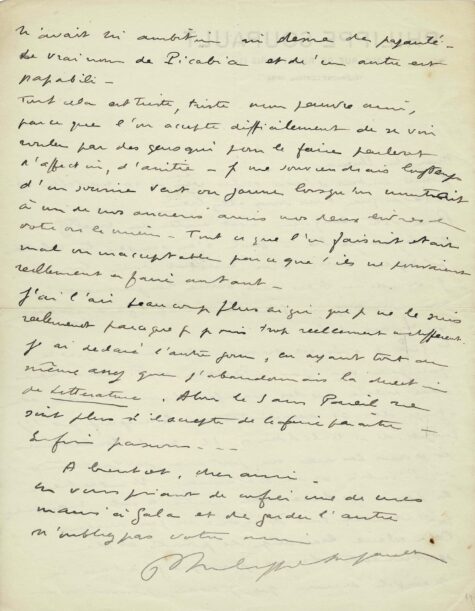 n'avait ni ambition ni désir de papauté -
Le vrai nom de Picabia et d'un autre est
papabili -
Tout cela est triste, triste mon pauvre ami,
parce que l'on accepte difficilement de se voir
rouler par des gens qui pour le faire parlent
d'affection, d'amitié - Je me souviendrais longtemps
d'un sourire vert ou jaune lorsqu'on montrait
à un de nos anciens amis nos deux livres le
votre ou le mien - Tout ce que l'on faisait était
mal ou inacceptable parce que s'ils ne pouvaient
réellement en faire autant -
J'ai l'air beaucoup plus aigri que je ne le suis
réellement parce que je suis trop réellement indifférent.
J'ai déclaré l'autre jour, en ayant tout de
même assez que j'abandonnais la direction
de Littérature.
sait plus s'il accepte de la faire paraître -
Enfin passons - - -
A bientôt, cher ami -
en vous priant de confier une de mes
mains à Gala et de garder l'autre
n'oubliez pas votre ami
Philippe Soupault